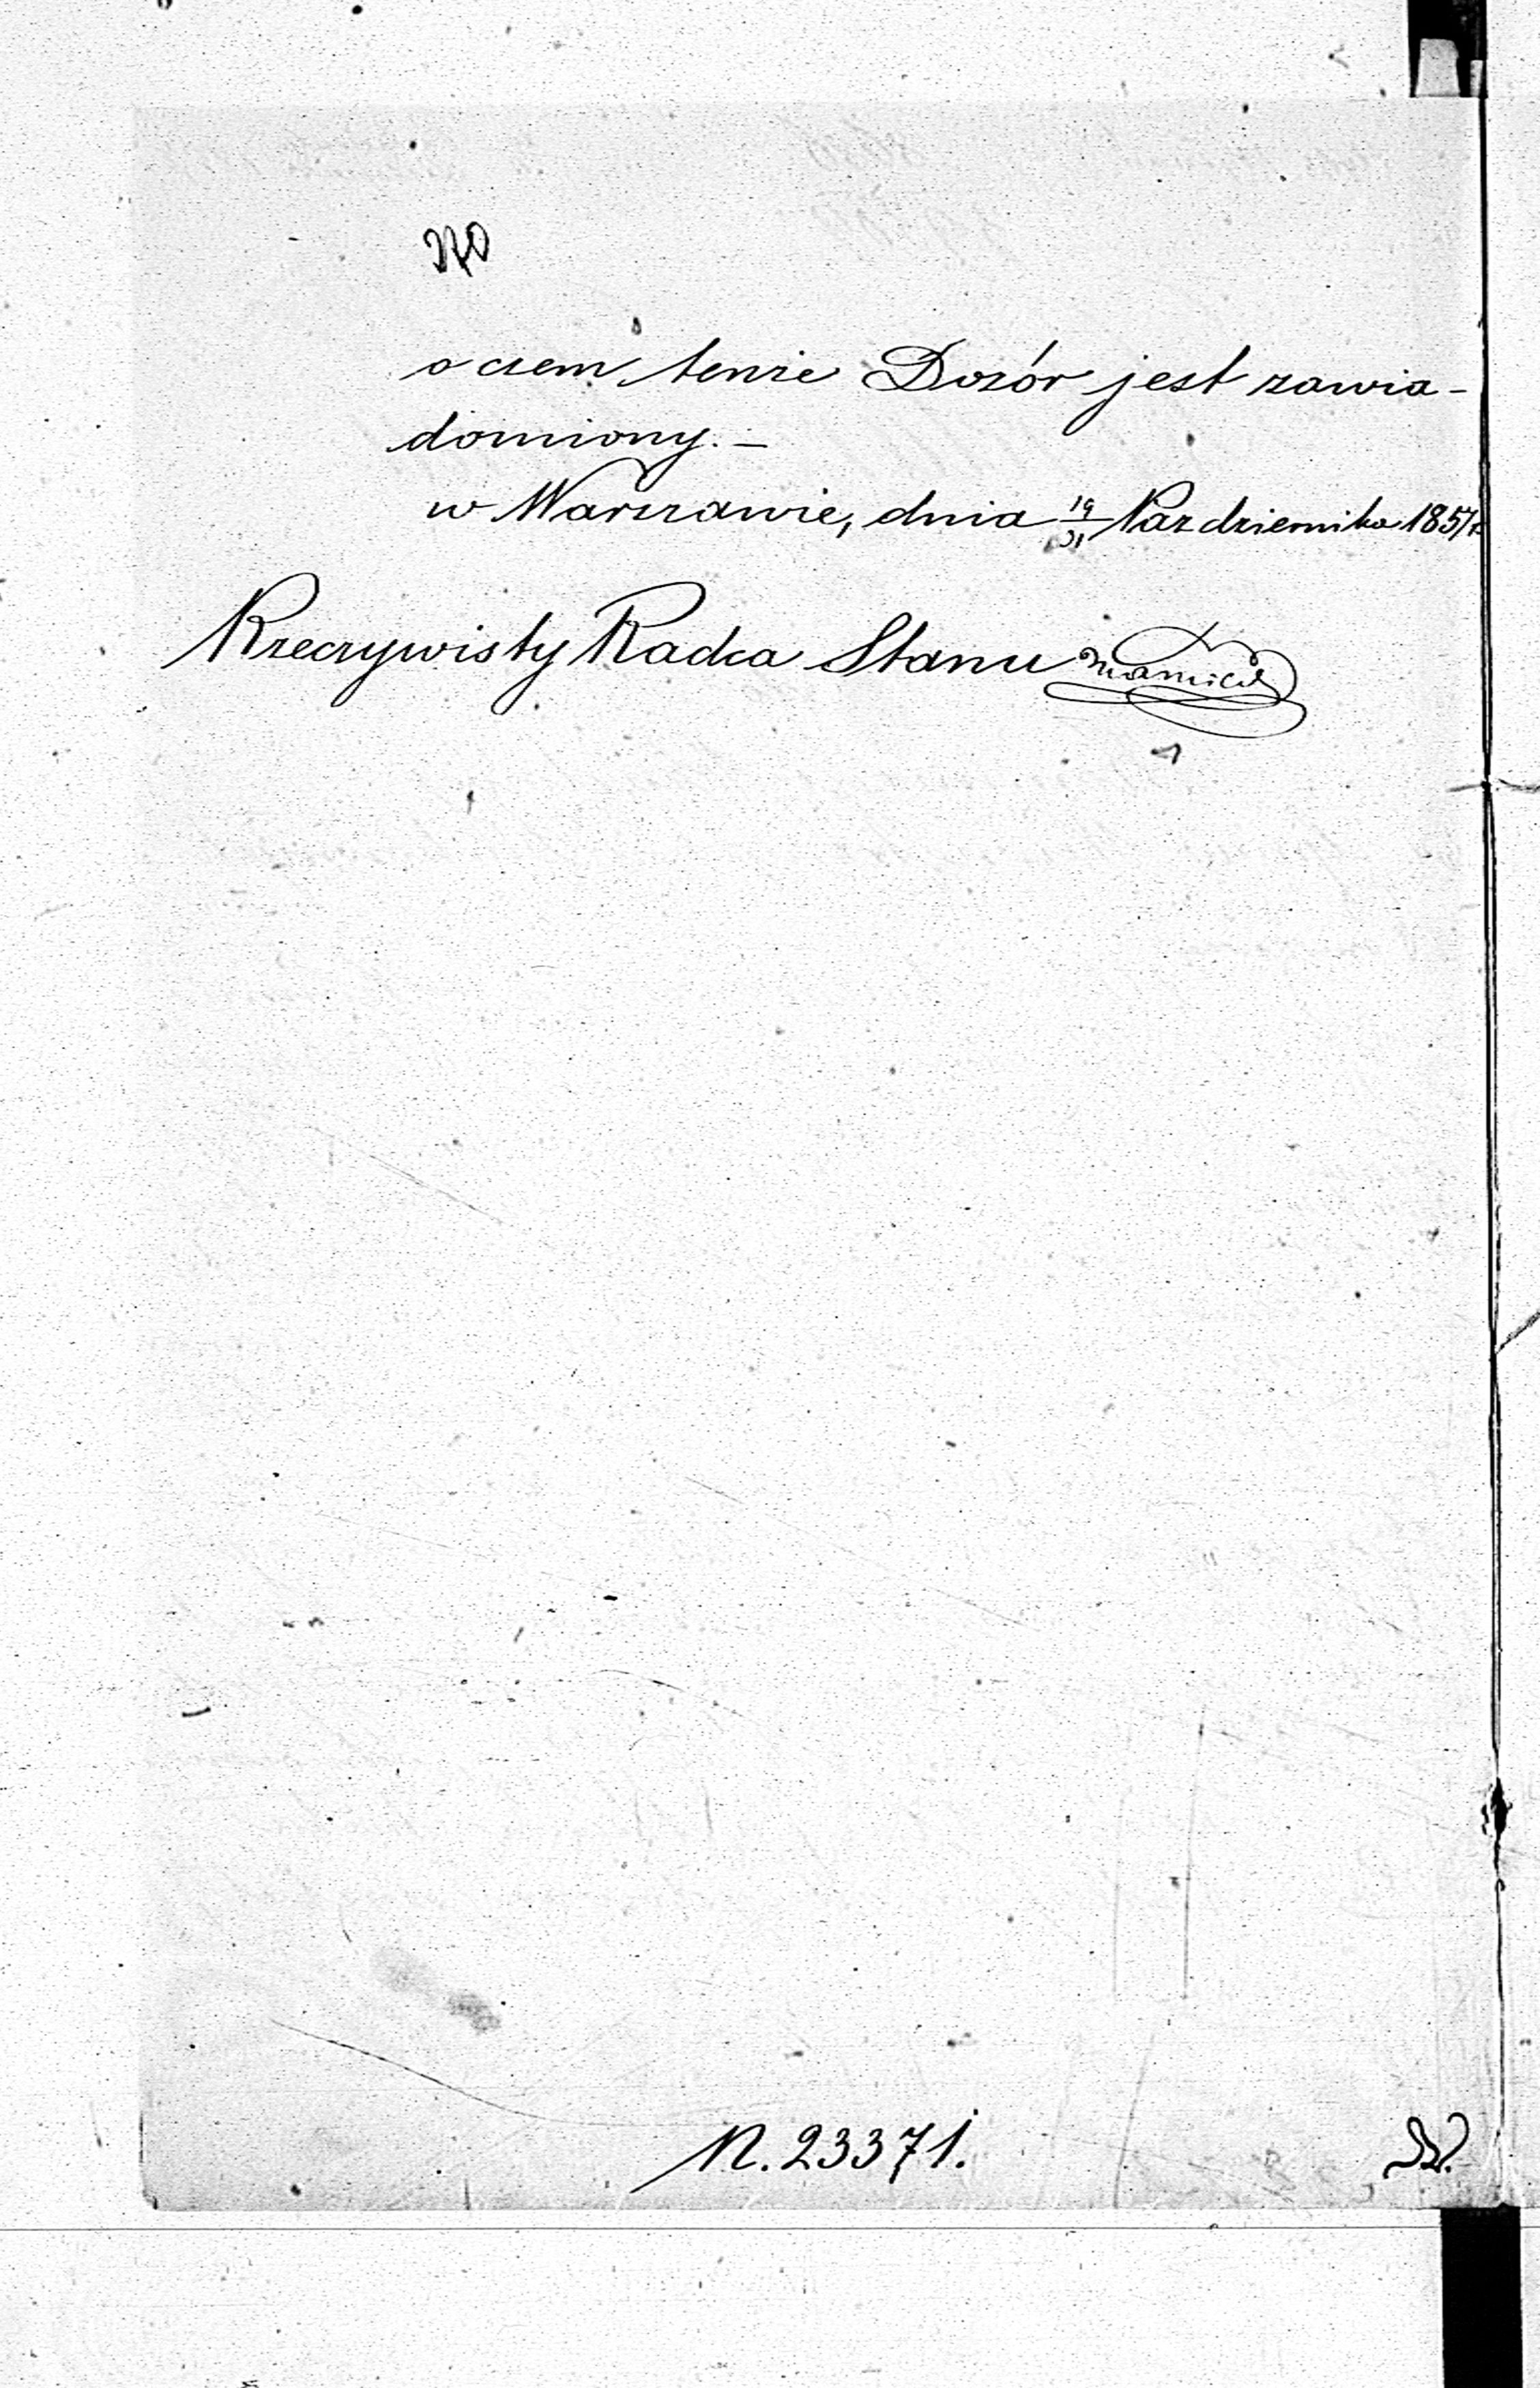 o czem tenże Dozór jest zawia-
domiony. —
w Warszawie, dnia 19/31 Pazdziernika 1857 r.
Rzeczywisty Radca Stanu
N. 23371.